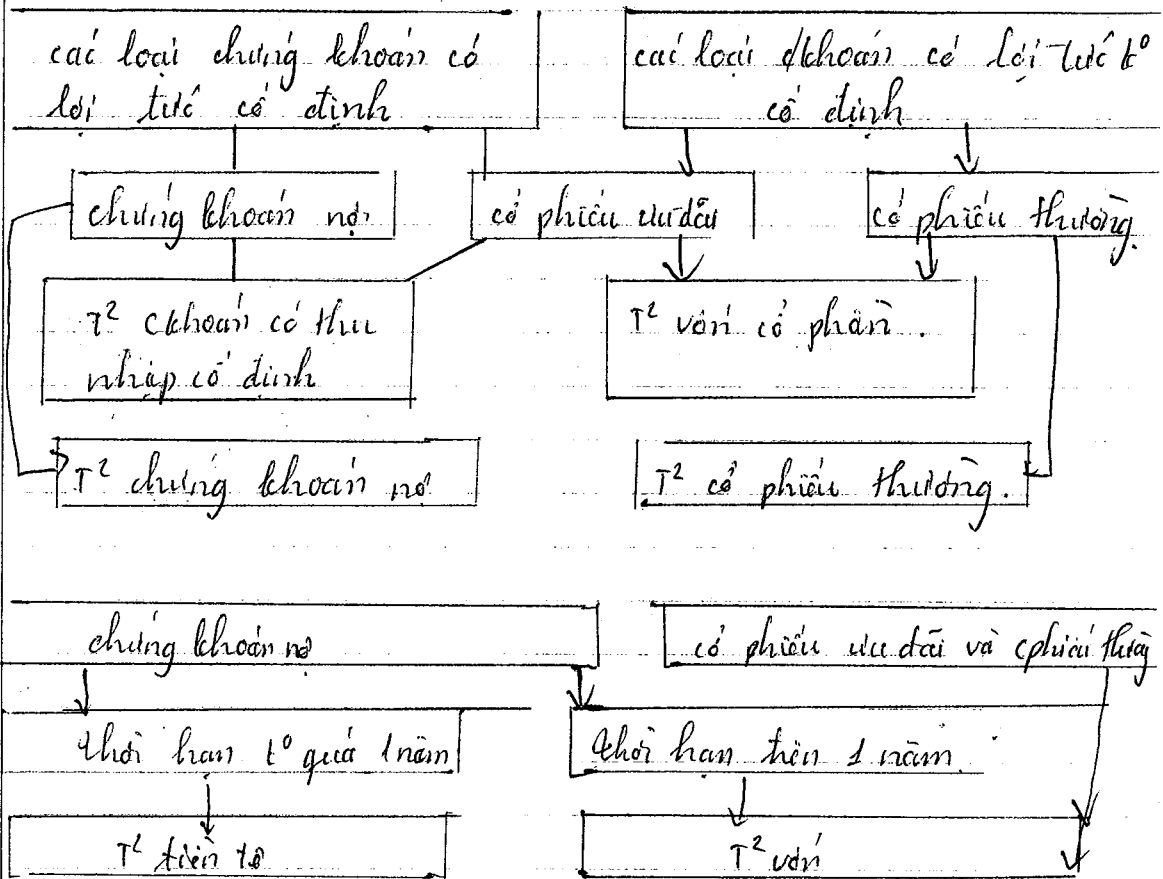 các loại chứng khoán có
lợi tức cố định
các loại c/khoán có lợi tức k°
cố định
chứng khoán nợ
cổ phiếu ưu đãi
cổ phiếu thường.
T² ckhoán có thu
nhập cố định
T² vốn cổ phần.
T² chứng khoán nợ
T² cổ phiếu thường.
chứng khoán nợ
cổ phiếu ưu đãi và cphiếu thường
thời hạn k° quá 1 năm
thời hạn trên 1 năm.
T² tiền tệ
T² vốn